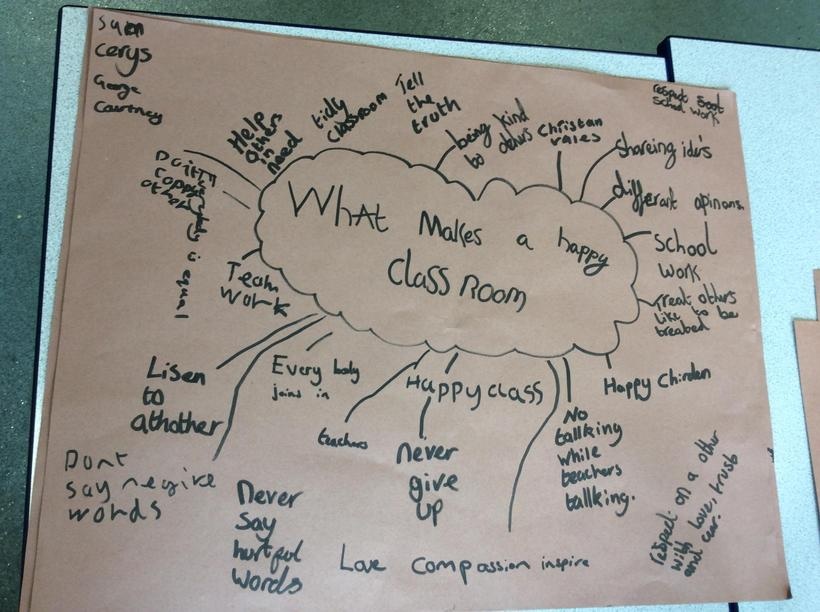 Sam
Cerys
George
Courtney
Help
others
in
need
tidy
classroom
Tell
the
truth
being kind
to others
Christan
vales
respect
School work
shareing ide's
different opinons.
School
work
treat others
like to be
treated
Happy Chirden
No
tallking
while
teachers
tallking.
respect on a other
with love, trust
and
What Makes a happy
Class Room
Don't
Copy
others
is equal
Team
work
Lisen
to
athother
Every body
joins in
teachers
Happy class
never
give
up
Dont
say negive
words
Never
say
hurtful
words
Love Compassion inspire